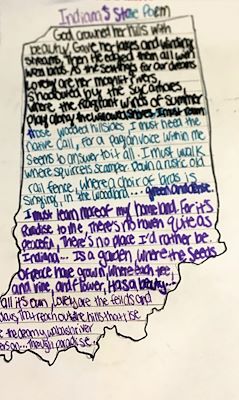 Indiana's State Poem
God crowned her hills with
beauty, Gave her lakes and winding
streams, Then He edged them all with
woodlands. As the settings for our dreams
Lovely are her moonlit rivers
Shadowed by the sycamores,
where the fragrant winds of summer
play along the willowed shores. I must roam
those wooded hillsides, I must heed the
native call, For a pagan voice within me
Seems to answer to it all. I must walk
where squirrels scamper Down a rustic old
rail fence, where a choir of birds is
singing, in the woodland... green and dense.
I must learn more of my homeland. For it's
Paradise to me, There's no haven quite as
peaceful, There's no place I'd rather be.
Indiana... Is a garden, where the seeds
Of peace have grown, where each tree,
and vine, and flower, Has a beauty...
all it's own, Lovely are the fields and
that reach out to the hills that rise
the dreamy Wabash river
through paradise...